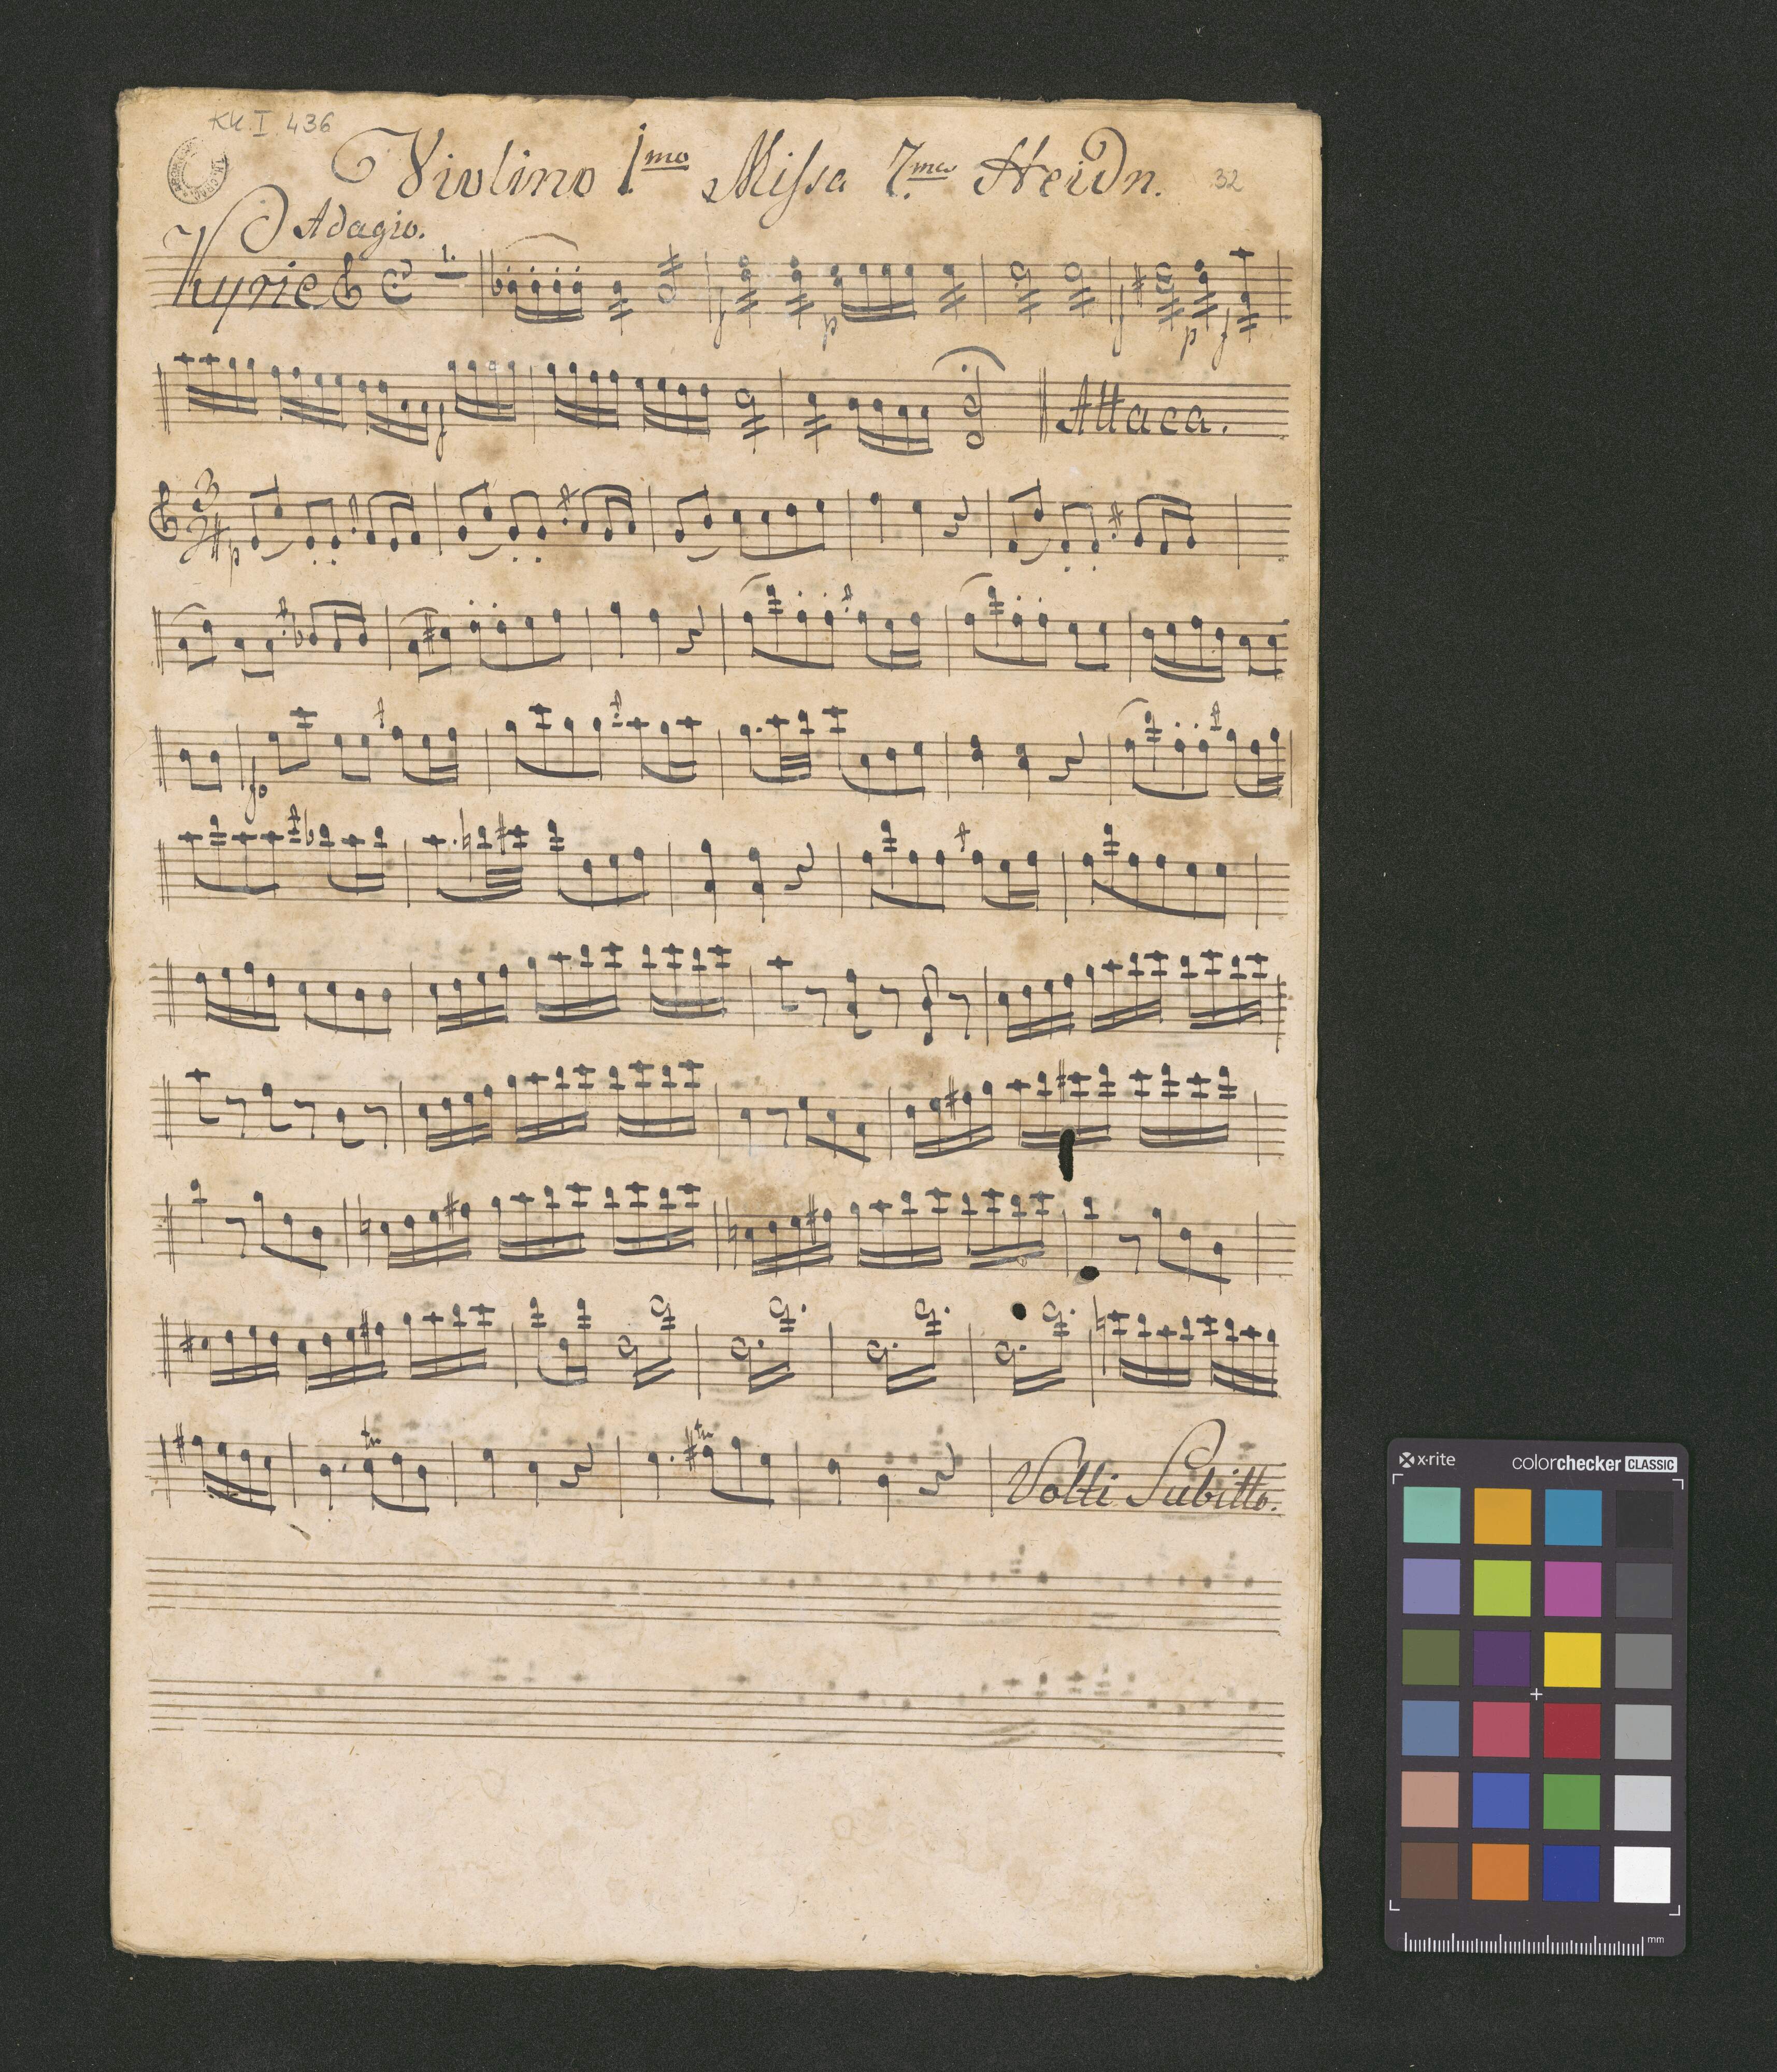 KK. I. 436
Violino 1mo Missa 7.ma Heidn. 32
Adagio.
Kyrie 1.
f p f p f
f Attaca.
3
p
fo
tr tr Volti Subitto.
x-rite colorchecker CLASSIC
mm